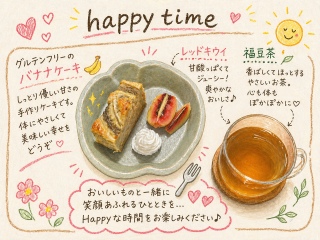 happy time
グルテンフリーの
バナナケーキ
しっとり優しい甘さの
手作りケーキです。
体にやさしくて
美味しい幸せを
どうぞ♡
レッドキウイ
甘酸っぱくて
ジューシー!
爽やかな
おいしさ♪
福豆茶
香ばしくてほっとする
やさしいお茶。
心も体も
ぽかぽかに♡
おいしいものと一緒に
笑顔あふれるひとときを…
Happyな時間をお楽しみください♪